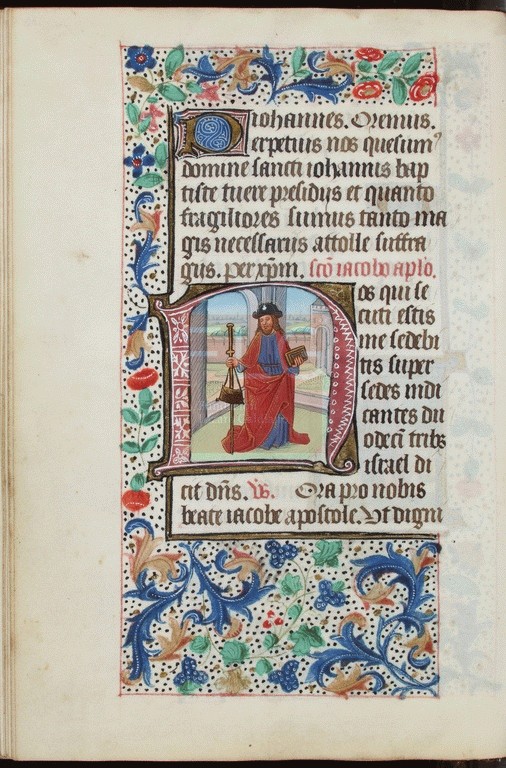 iohannes. Oremus.
Perpetuis nos quesum'
domine sancti iohannis bap
tiste tuere presidijs et quanto
fragiliores sumus tanto ma
gis necessarijs attolle suffra
gijs. per xp̄m. sc̄o iacobo aplo.
Vos qui se
cuti estis
me sedebi
tis super
sedes iudi
cantes du
odecī trib9
israel di
cit dn̄s. V. Ora pro nobis
beate iacobe apostole. Vt digni